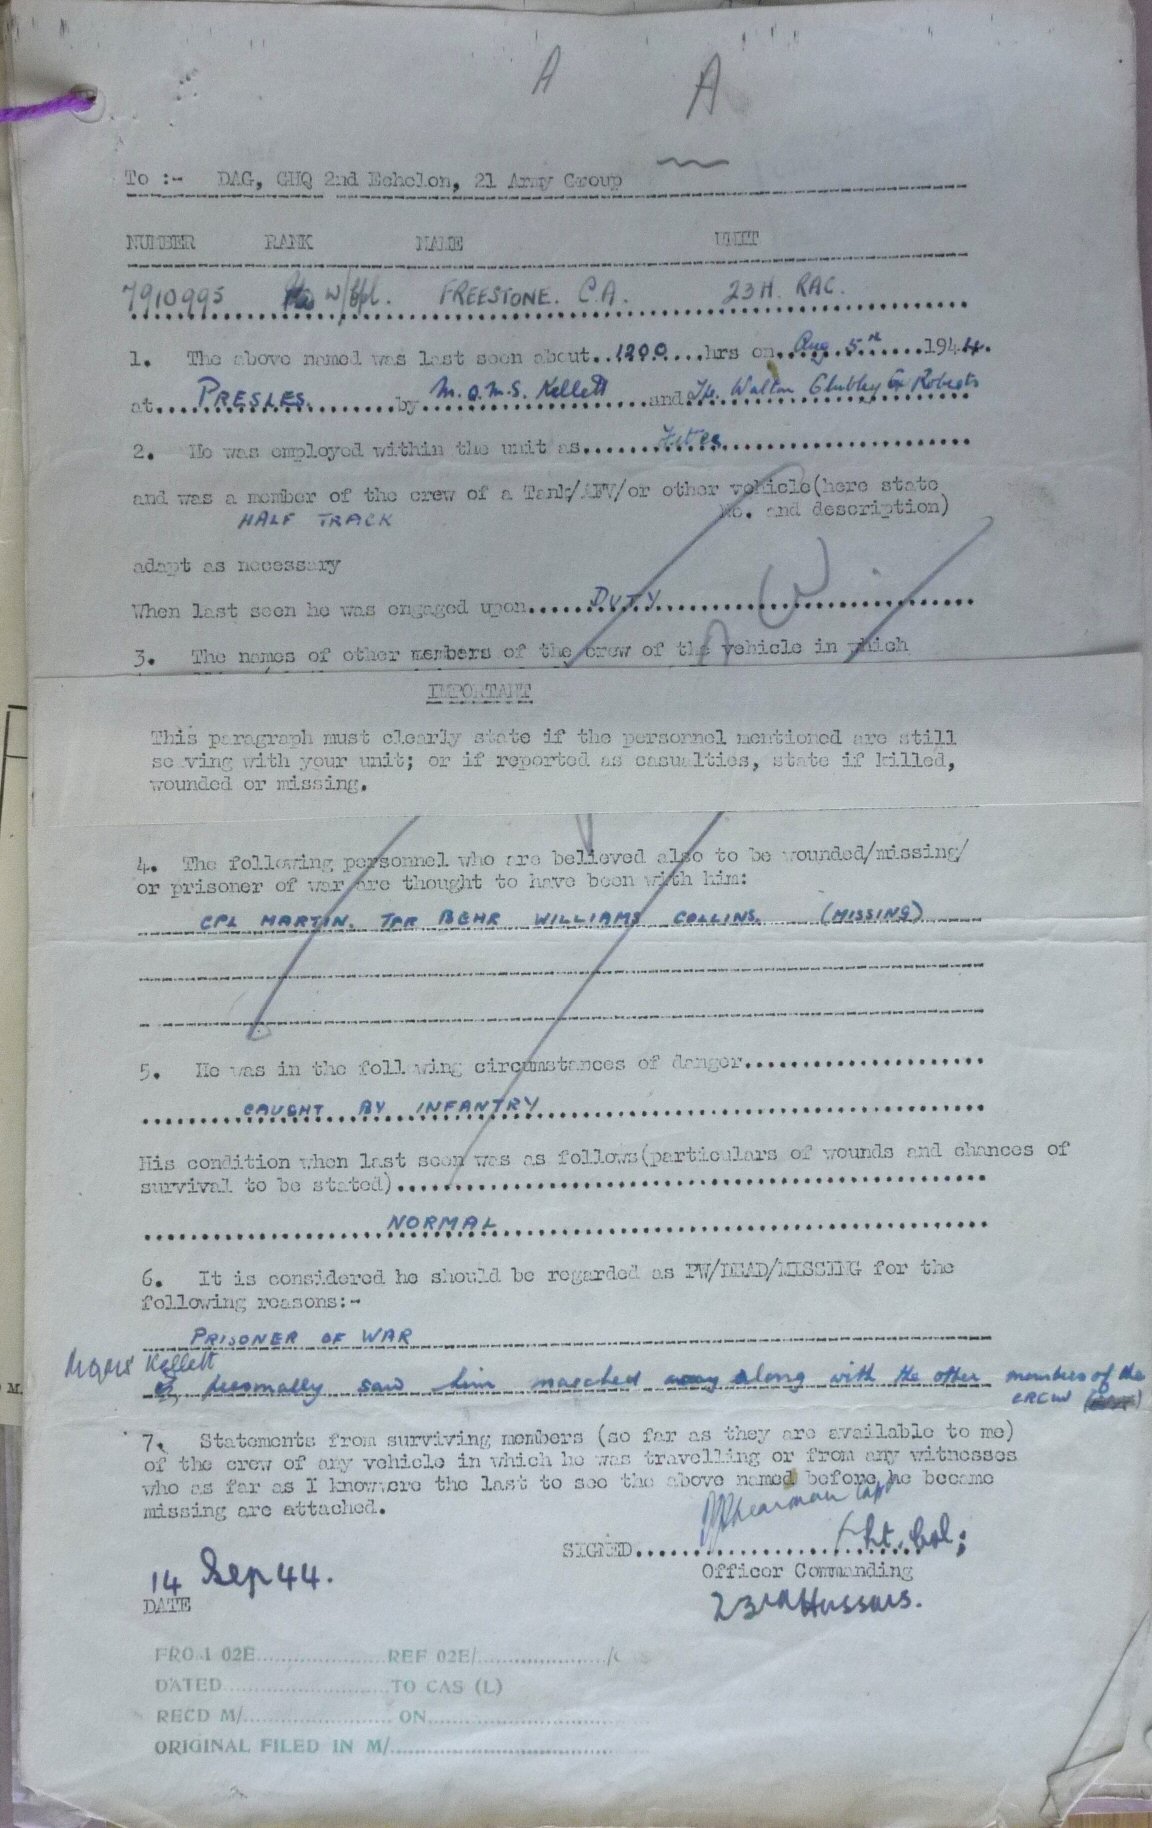 A A
To :- DAG, GHQ 2nd Echelon, 21 Army Group
NUMBER RANK NAME UNIT
7910995 W/Cpl. FREESTONE. C.A. 23H. RAC.
1. The above named was last seen about..1200....hrs on...Aug 5th......1944.
at....PRESLES.........by M.Q.M.S. Kellett and Tpr. Walton Glubley Roberts
2. He was employed within the unit as.......
and was a member of the crew of a Tank/AFV/or other vehicle(here state
No. and description)
HALF TRACK
adapt as necessary
When last seen he was engaged upon......DUTY..............................
3. The names of other members of the crew of the vehicle in which
IMPORTANT
This paragraph must clearly state if the personnel mentioned are still
se ving with your unit; or if reported as casualties, state if killed,
wounded or missing.
4. The following personnel who are believed also to be wounded/missing/
or prisoner of war are thought to have been with him:
CPL MARTIN. TPR BEHR WILLIAMS COLLINS. (MISSING)
5. He was in the foll wing circumstances of danger......................
CAUGHT BY INFANTRY
His condition when last seen was as follows(particulars of wounds and chances of
survival to be stated)..........................................
NORMAL
6. It is considered he should be regarded as PW/DEAD/MISSING for the
following reasons:-
PRISONER OF WAR
Kellett
personally saw him marched away along with the other members of the
CREW
7. Statements from surviving members (so far as they are available to me)
of the crew of any vehicle in which he was travelling or from any witnesses
who as far as I know were the last to see the above named before he became
missing are attached.
Shearman Capt
SIGNED.................... f Lt. Col;
Officer Commanding
14 Sep 44.
23rd Hussars.
DATE
FROM 02E....................REF 02E/..................../
DATED.........................TO CAS (L)
RECD M/....................... ON...............................
ORIGINAL FILED IN M/...............................